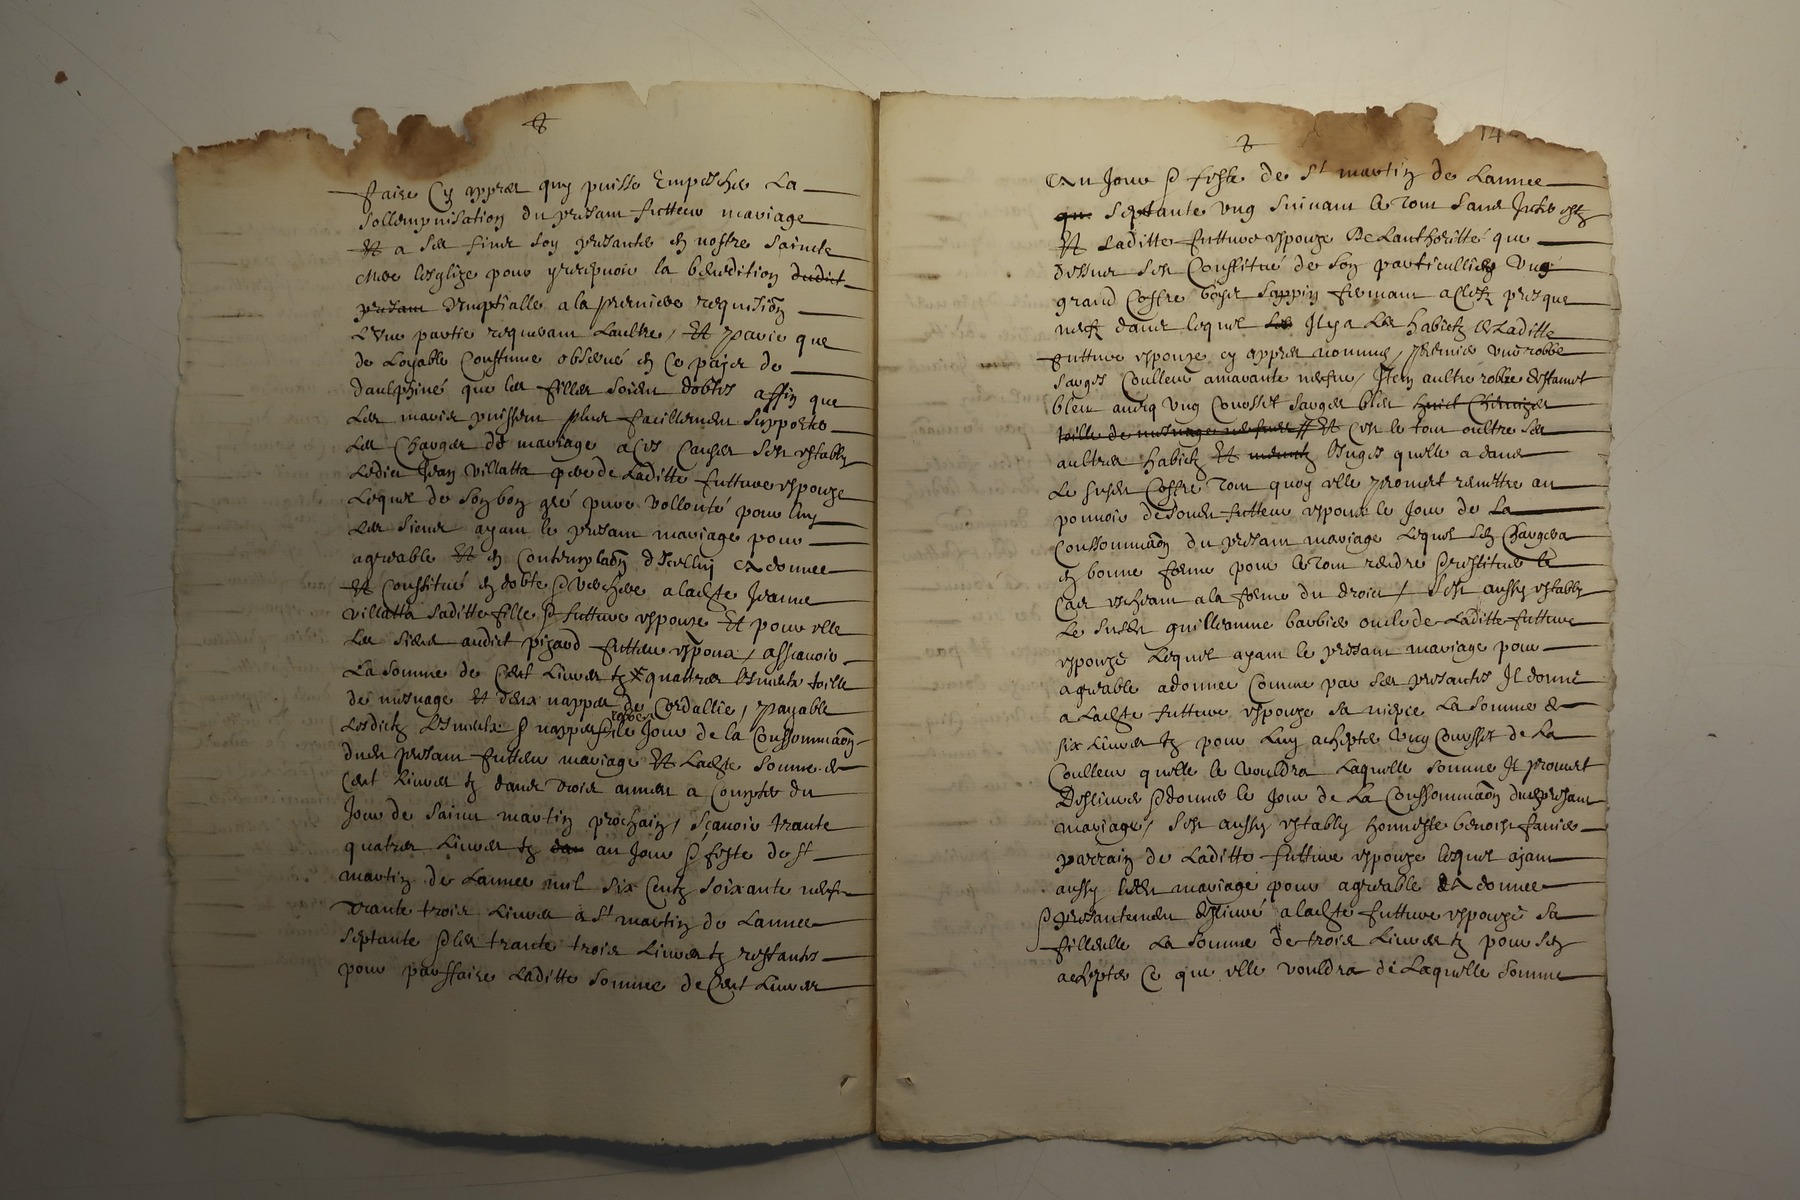 faire cy appres quy puisse Empescher La
sollempnisation du presant futteur mariage
Et a ses fins soy presanter en nostre saincte
mere lesglize pour y recepvoir la benedition dudict
presant Nuptialle a la premiere requisiõn
L'Une partie requerant Laultre / Et parce que
de Loyable Coustume observé en Ce pajes de
daulphiné que les filles soient dobtés affin que
Les maris puissent plus facillement supporter
Les Charges de mariage a Ces Causes sest establj
Ledict Jean Villatta pere de Laditte futture espouze
Lequel de son bon gré pure vollonté pour luy
Les siens ayant le presant mariage pour
agreable Et en Contemplaõn d'Icelluy A donné
Et Constitué en dobte & verchere a ladte Jeanne
Villatta saditte fille & futture espouze Et pour elle
Les siens audict pizard futteur espoux / assçavoir
La somme de Cent Livres tz quattres linceulx toille
de mesnage Et deux nappes de Cordallie / payable
Lesdictz Linceulx & nappes robbes le Jour de la Consommaõn
dudt presant futteur mariage Et Ladte somme de
Cent Livres tz dans trois annees a Compter du
Jour de Sainct martin prochain / sçavoir trante
quatres Livres tz au Jour & feste de St
martin de Lannee mil six Centz soixante neuf
trante trois Livres a St martin de Lannee
septante & les trante trois Livres tz restantes
pour parffaire Laditte somme de Cent Livres
14
Au Jour & feste de St martin de Lannee
que septante Ung suivant le tout sans Interestz
Et Laditte futture espouze De Lautheritté que
dessus sest Constitué de son particullier Ung
grand Coffre bois sappin fermant a Clefz presque
neufz dans lequel Il y a Les habictz de Laditte
futture espouze cy appres nommes / premier une robbe
sarges Coulleur amarante neufve / Item aultre robbe destamet
bleu avecq Ung Corosset sarges bleu huict Chemizes
toille de mesnage neufves // Et Cest le tout oultre ses
aultres habictz Et linges quelle a dans
Le susdt Coffre tout quoy elle promet remettre au
pouvoir desondt futteur espoux le Jour de La
Consommaõn du presant mariage Lequel sen Chargera
en bonne forme pour le tout rendre & restituer le
Cas escheant a la forme du droict / Sest aussy establj
Le Sieur guilleaume barbier oncle de Laditte futture
espouze Lequel ayant le presant mariage pour
agreable a donné Comme par ses presantes Il donne
a Ladte futture espouze sa niepce La somme de
six Livres tz pour Luy achepter Ung Corosset de La
Coulleur quelle le vouldra Laquelle somme Il promet
Deslivrer & donner le Jour de La Consommaõn dudt presant
mariage / Sest aussy establj honneste benoist favier
parrain de Laditte futture espouze lequel ajant
aussy ledt mariage pour agreable A donné
& presantement deslivré a ladte futture espouze sa
filleulle La somme de trois Livres tz pour sen
achepter Ce que elle vouldra de Laquelle somme